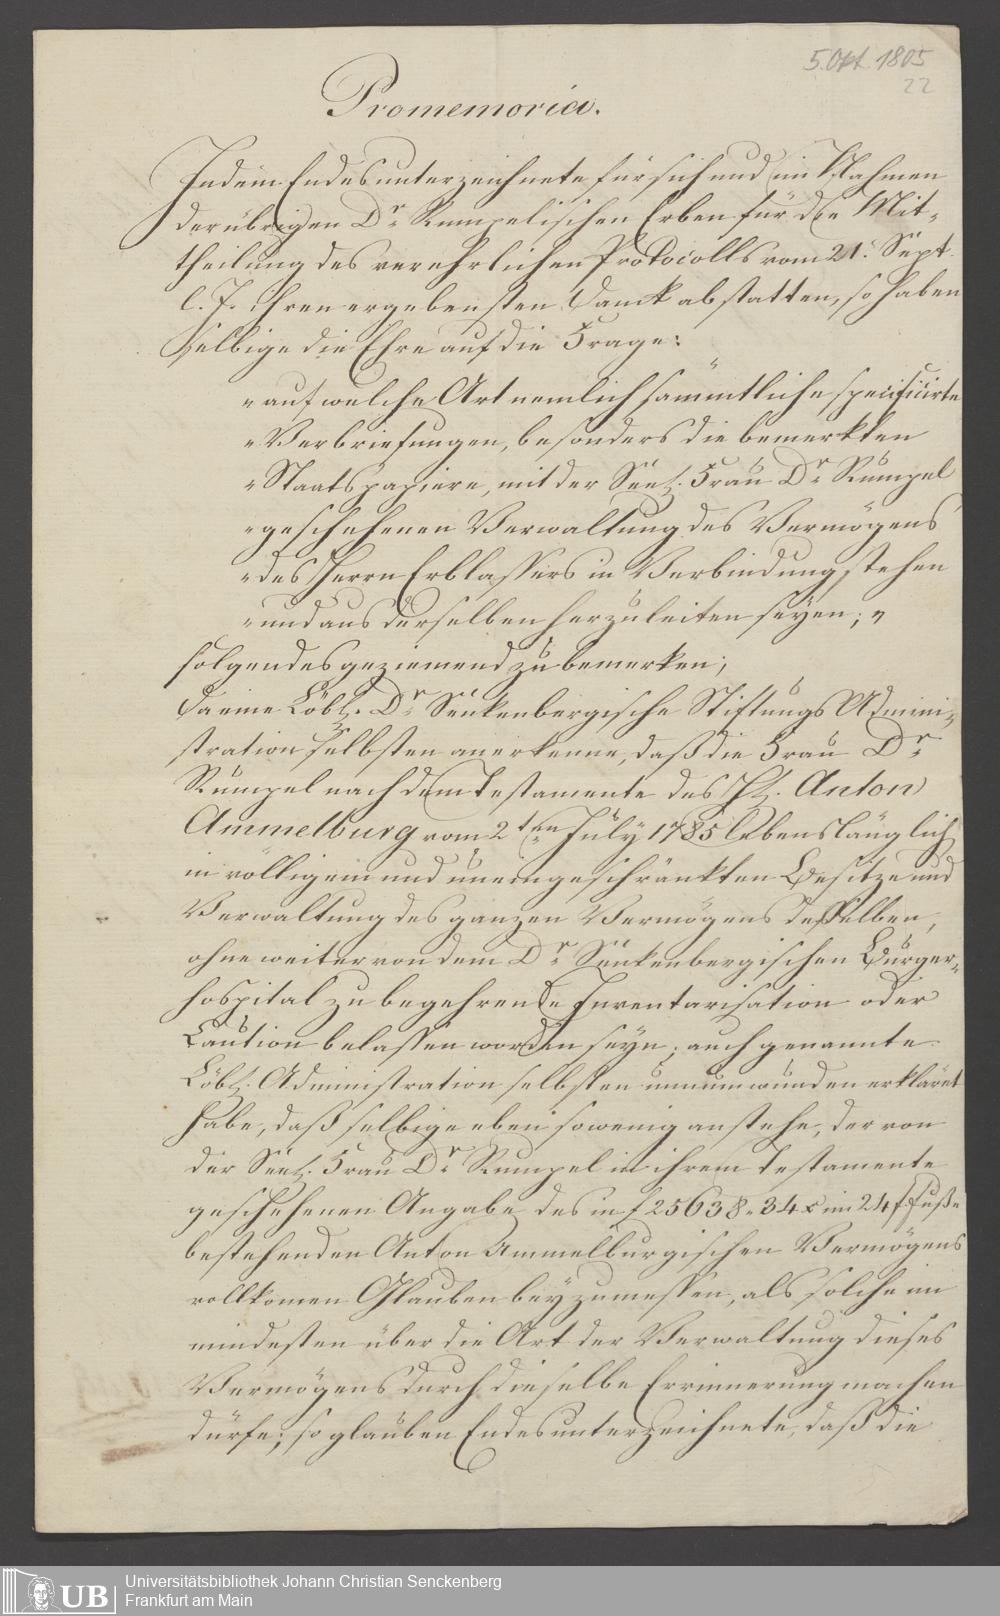 5. Okt. 1805
22
Promemoria.
Indem Endesunterzeichnete für sich und im Nahmen
der übrigen Dr. Rumpelischen Erben für die Mit-
theilung des verehrlichen Protocolls vom 21. Sept.
l. J. ihren ergebensten Danck abstatten, so haben
selbige die Ehre auf die Frage:
"auf welche Art nemlich sämmtliche specificirte
"Verbriefungen, besonders die bemerkten
"Staatspapiere, mit der Seel. Frau Dr. Rumpel
"geschehenen Verwaltung des Vermögens
"des Herrn Erblassers in Verbindung stehen
"und aus derselben herzuleiten seyen; "
folgendes geziemend zu bemerken;
Da eine Löbl. Dr. Senkenbergische Stiftungs Admini-
stration selbsten anerkenne, daß die Frau Dr.
Rumpel nach dem Testamente des H. Anton
Ammelburg vom 2ten July 1785 lebenslänglich
in völligem und uneingeschränkten Besitze und
Verwaltung des ganzen Vermögens desselben,
ohne weiter von dem Dr. Senkenbergischen Bürger-
hospital zu begehrende Inventarisation oder
Caution belassen worden seyn; auch genannte
Löbl. Administration selbsten unumwunden erkläret
habe, daß selbige eben so wenig anstehe, der von
der Seel. Frau Dr. Rumpel in ihrem Testamente
geschehenen Angabe des in f 25638. 34 x im 24 f. fuße
bestehenden Anton Ammelburgischen Vermögens
vollkomen Glauben beyzumessen, als solche im
mindesten über die Art der Verwaltung dieses
Vermögens durch dieselbe Errinnerung machen
dürfe; so glauben Endesunterzeichnete, daß die
UB
Universitätsbibliothek Johann Christian Senckenberg
Frankfurt am Main